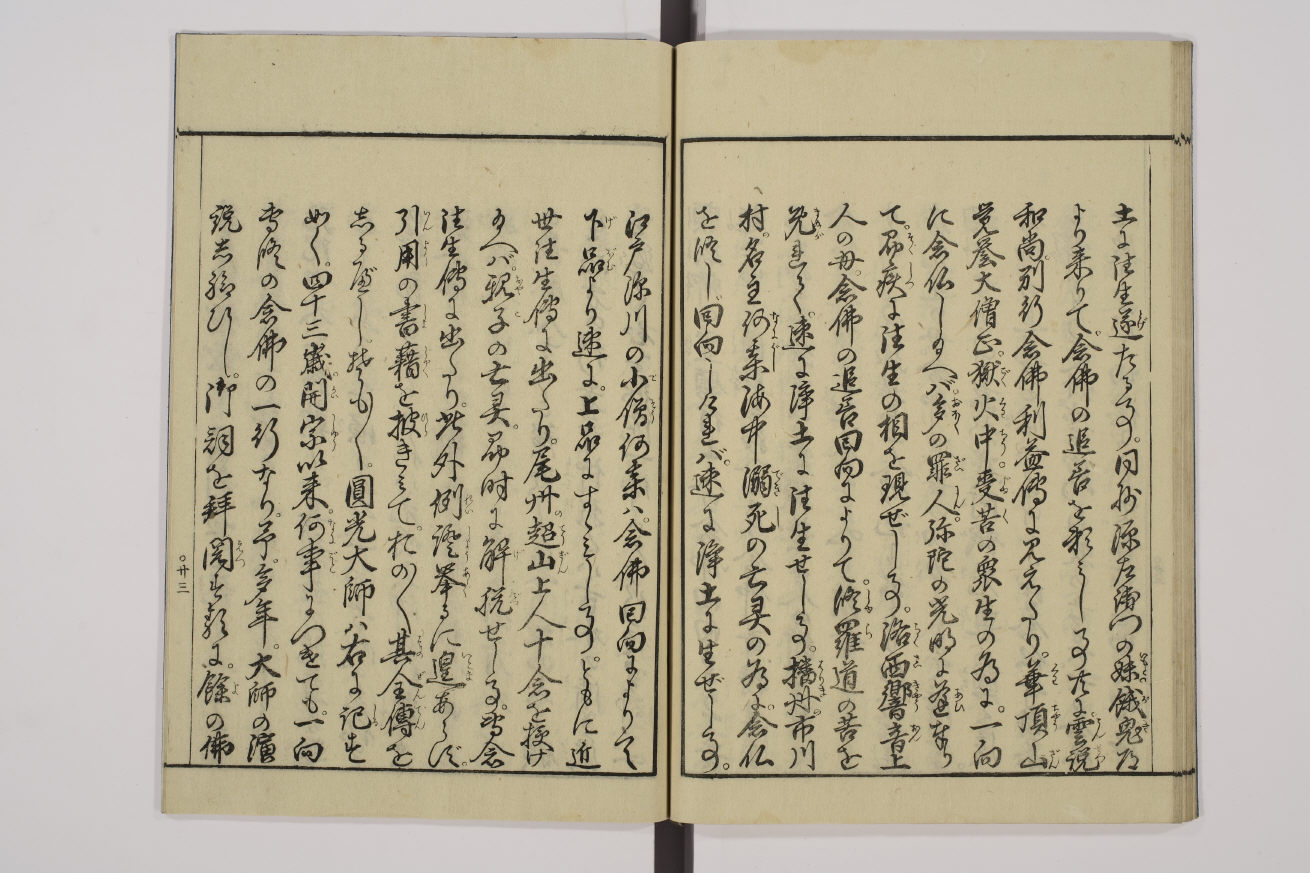 土に往生遂たる事。同抄源左衛門の妹餓鬼道
より来りて。念佛の追善を頼みし事。左に霊説
和尚。別行念佛利益傳に見えたり。華頂山
覚誉大僧正。獄火中受苦の衆生の為に。一向
に念仏し玉へバ多の罪人。弥陀の光明に遊奉り
て。即疾に往生の相を現ぜし事。洛西響音上
人の母。念佛の追善回向によりて。修羅道の苦を
免まぬがれて。速に浄土に往生せし事。播州市川
村。名主何某海中溺死の亡灵の為に。念仏
を修し回向しければ。速に浄土に生ぜし事。
江戸深川の小僧何某ハ。念佛回向によりて
下品より速に。上品にすゝみし事。ともに近
世往生傳に出たり。尾州超山上人十念を授け
玉へバ。親子の亡灵。即時に解脱せし事。専念
往生傳に出たり。此外例證挙るに遑あらず。
引用の書籍を披きみて。おの〱其全傳を
しるべし。そも〱。圓光大師ハ右に記す
如く。四十三歳開宗以来。何事につけても。一向
専修の念佛の一行なり。予。多年。大師の濱
説し給ひし。御詞を拝閲する に。餘の佛
○廿三